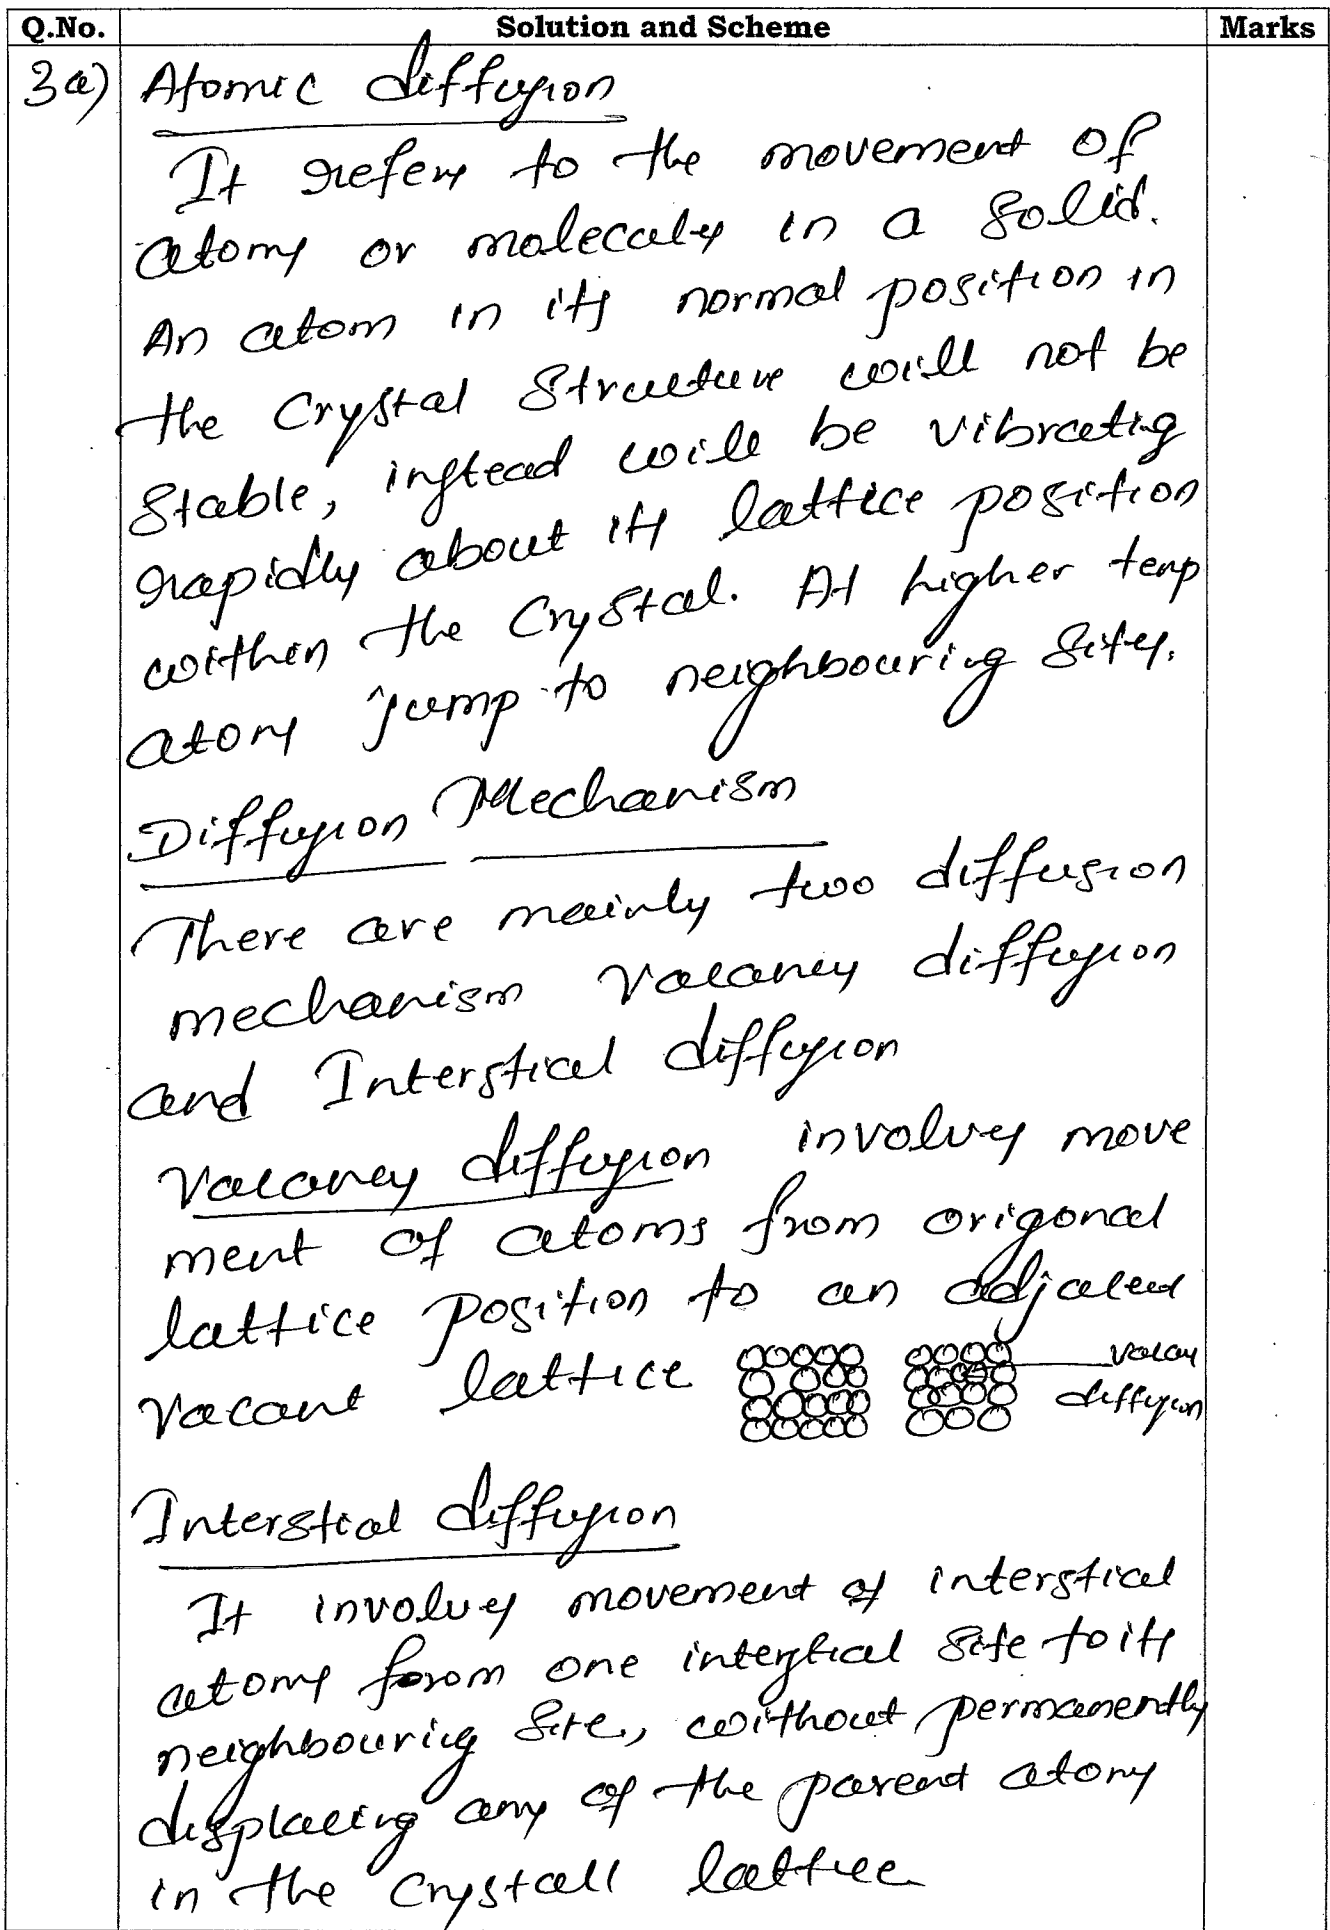 Q.No. Solution and Scheme Marks
3a) Atomic diffusion
It refers to the movement of
atoms or molecules in a solid.
An atom in its normal position in
the Crystal Structure will not be
Stable, instead will be vibrating
rapidly about its lattice position
within the Crystal. At higher temp
atoms jump to neighbouring Sites.
Diffusion Mechanism
There are mainly two diffusion
mechanism Vacancy diffusion
and Interstical diffusion
Vacancy diffusion involves move
ment of atoms from origonal
lattice Position to an adjacent
Vacant lattice
diffusion
Interstial diffusion
It involves movement of interstical
atoms from one interstical Site to its
neighbouring Site, without permanently
displacing any of the parent atoms
in the Crystall lattice